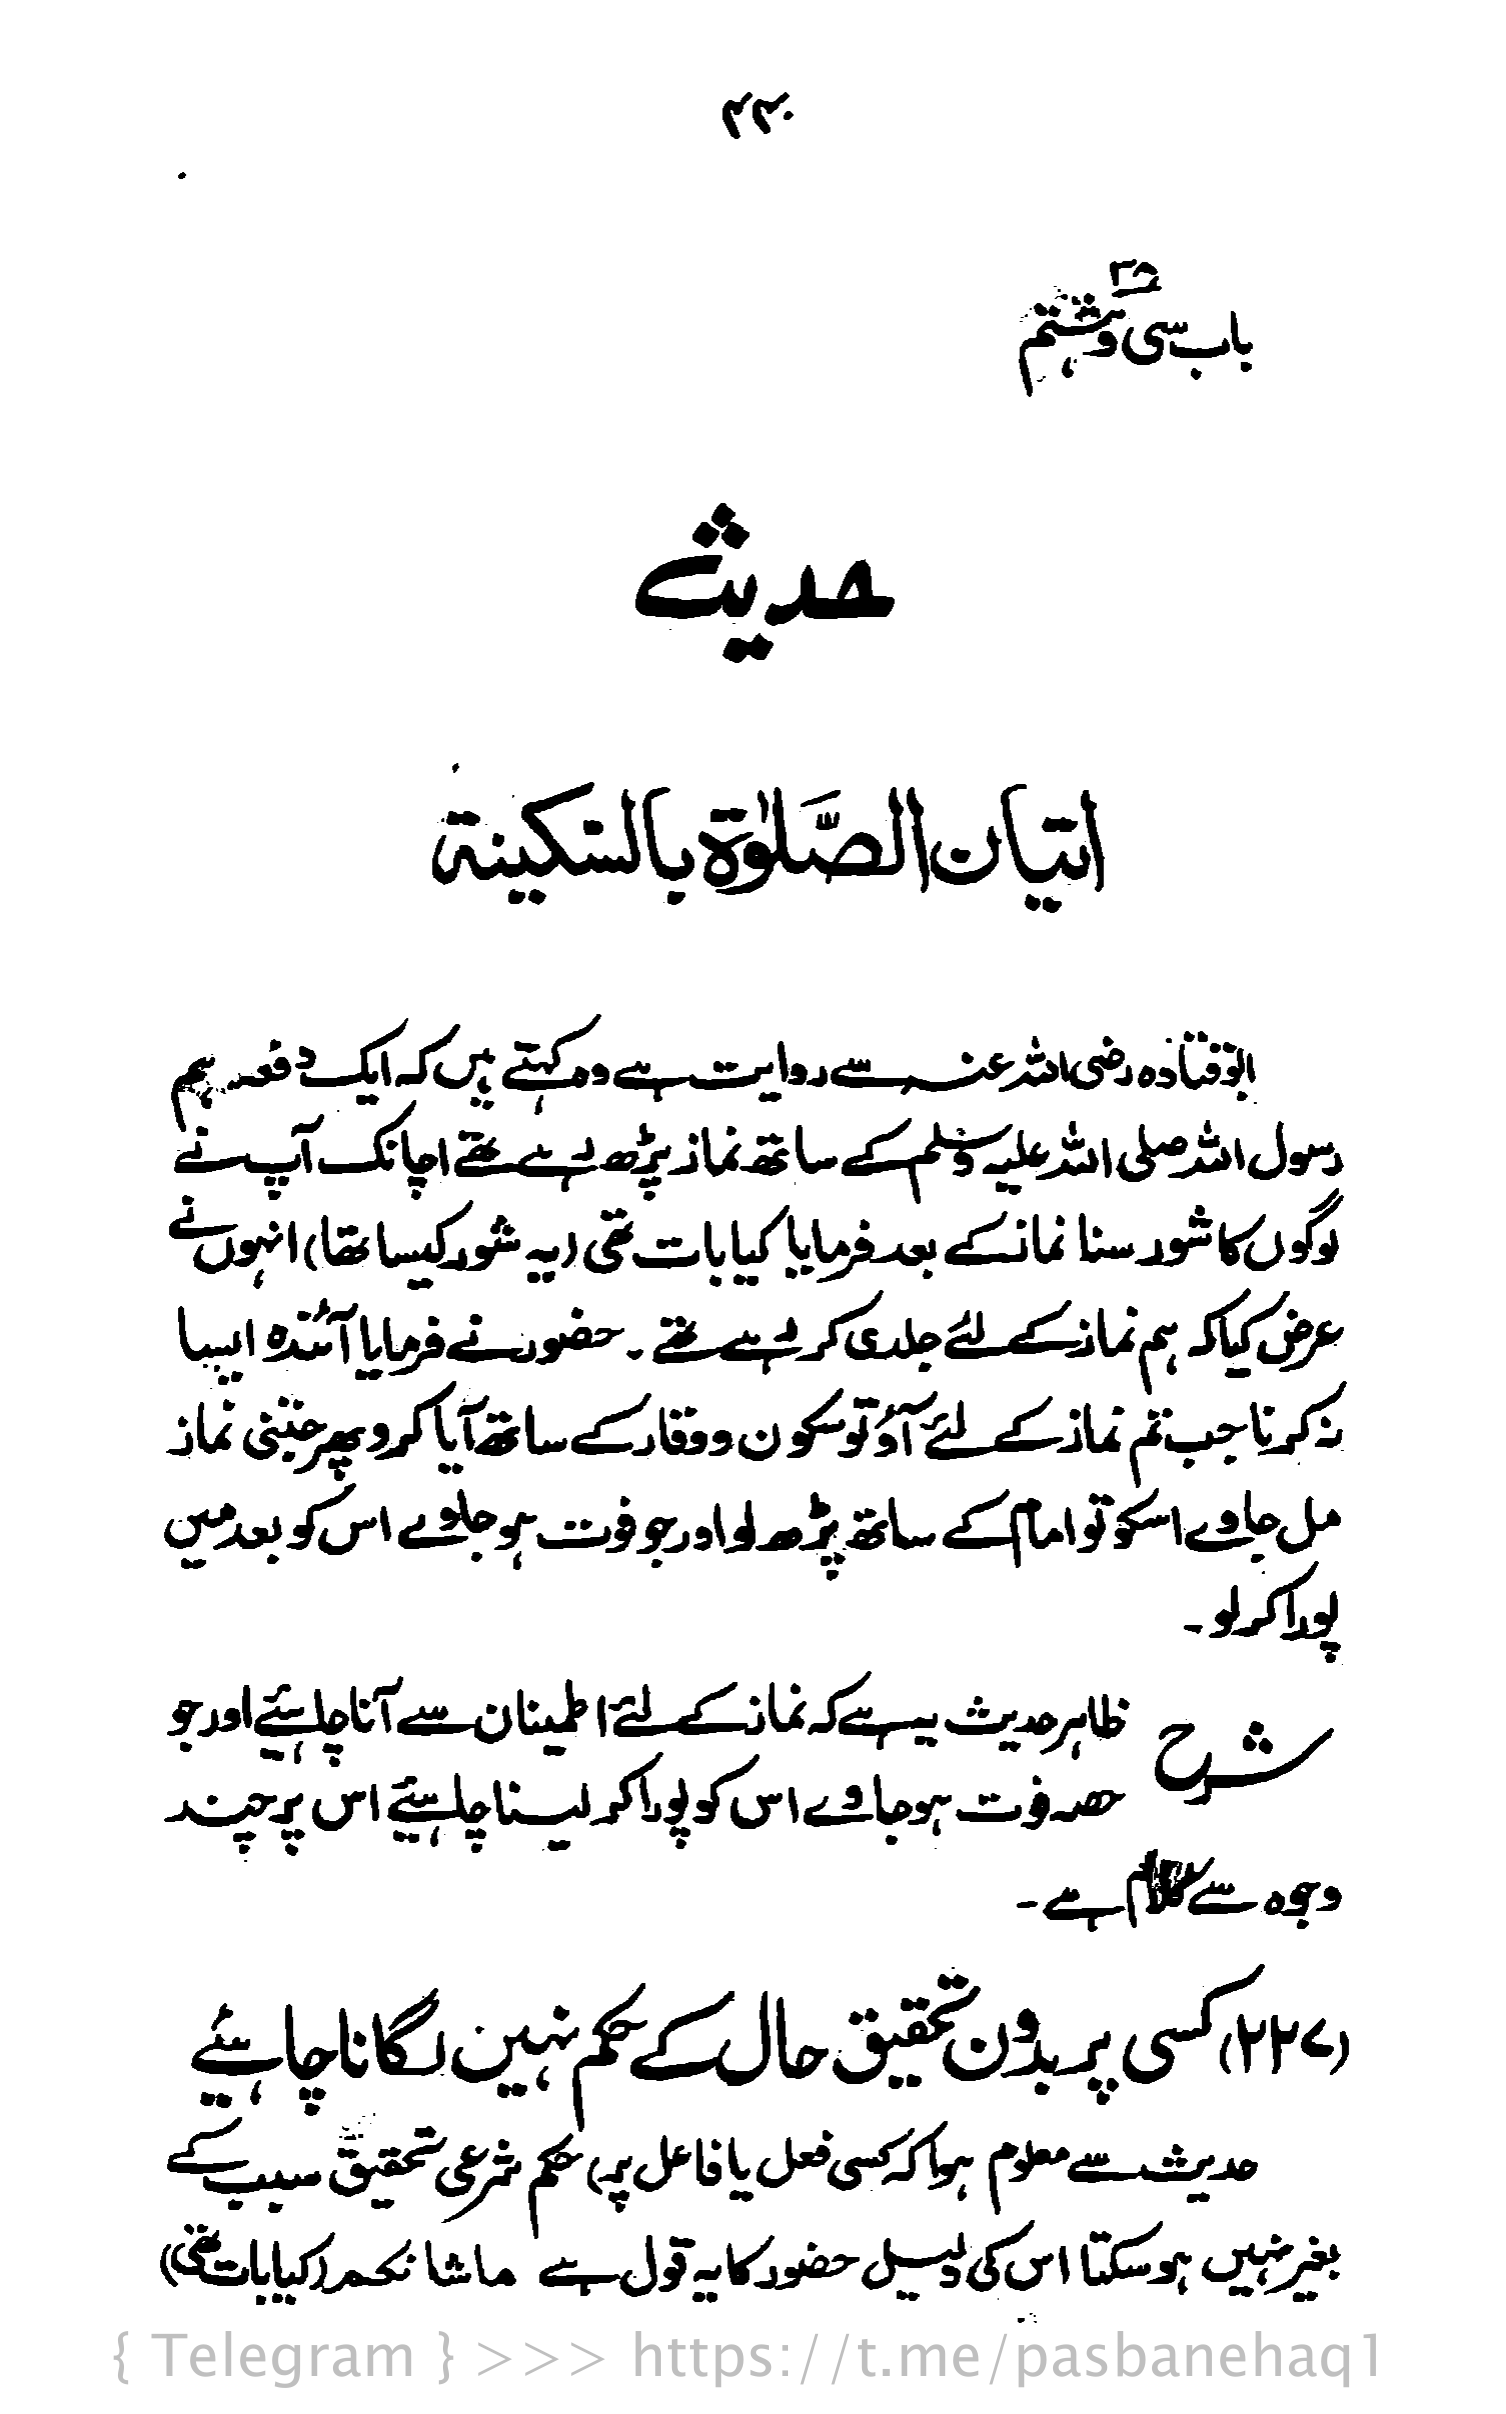 ۴۴۰
۳۸
باب سی و ہشتم
حدیث
اتیان الصَّلوٰۃ بالسّکینۃ
ابوقتادہ رضی اللہ عنہ سے روایت ہے وہ کہتے ہیں کہ ایک دفعہ ہم
رسول اللہ صلی اللہ علیہ وسلم کے ساتھ نماز پڑھ رہے تھے اچانک آپ نے
لوگوں کا شور سنا نماز کے بعد فرمایا کیا بات تھی (یہ شور کیسا تھا) انہوں نے
عرض کیا کہ ہم نماز کے لئے جلدی کر رہے تھے ۔ حضور نے فرمایا آئندہ ایسا
نہ کرنا جب تم نماز کے لئے آؤ تو سکون و وقار کے ساتھ آیا کرو پھر جتنی نماز
مل جاوے اسکو تو امام کے ساتھ پڑھ لو اور جو فوت ہو جاوے اس کو بعد میں
پورا کر لو ۔
شرح ظاہر حدیث یہ ہے کہ نماز کے لئے اطمینان سے آنا چاہئیے اور جو
حصہ فوت ہو جاوے اس کو پورا کر لینا چاہئیے اس پر چند
وجوہ سے کلام ہے ۔
(۲۲۷) کسی پر بدون تحقیق حال کے حکم نہیں لگانا چاہئیے
حدیث سے معلوم ہوا کہ کسی فعل یا فاعل پر) حکم شرعی تحقیق سبب کے
بغیر نہیں ہو سکتا اس کی دلیل حضور کا یہ قول ہے ماشانکم (کیا بات تھی)
{ Telegram } >>> https://t.me/pasbanehaq1